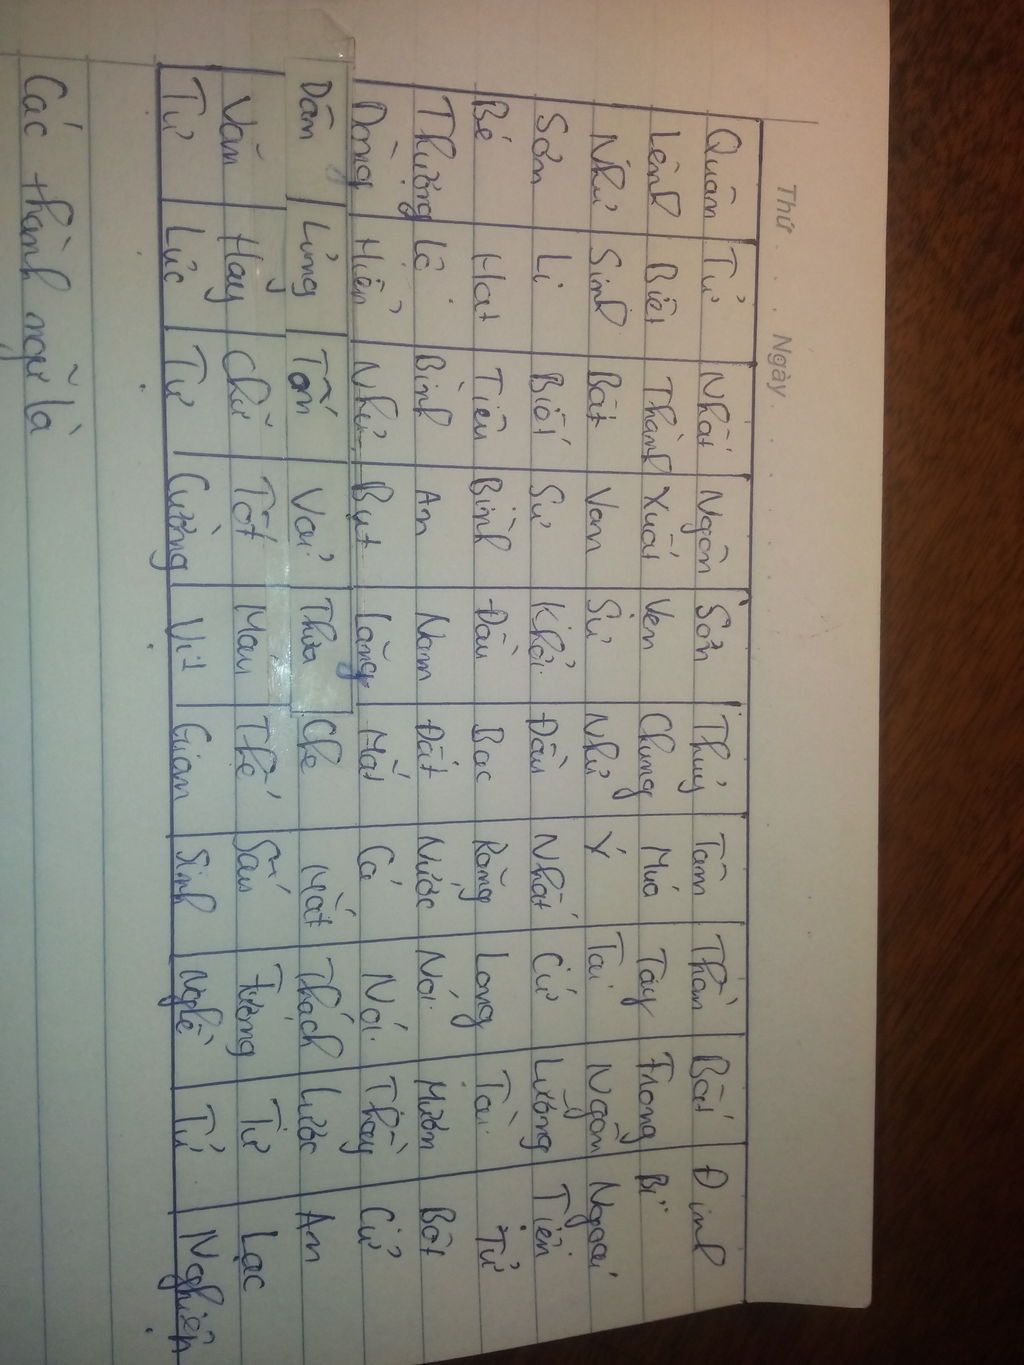 Thứ . . Ngày
Quân Tử Nhất Ngôn Sơn Thủy Tâm Thần Bất Định
Lệnh Biệt Thành Xuất Ven Chung Múa Tay Trong Bị
Như Sinh Bất Vạn Sự Như Ý Tại Ngôn Ngoại
Sớm Li Biết Sư Khởi Đầu Nhất Cử Lưỡng Tiện
Bé Hạt Tiêu Bình Đầu Bạc Răng Long Tài Tử
Thượng Lộ Bình An Nam Đất Nước Nói Mượn Bột
Dòng Hiền Như Bụt Lẵng Mắt Cá Nói Thầy Cử
Dầm Lửng Tốn Vải Thưa Che Mắt Thách Lước An
Văn Hay Chữ Tốt Mau Thế Sấu Tướng Tự Lạc
Tự Lực Tự Cường Vịt Gian Sinh Nghề Tứ
Các thành ngữ là